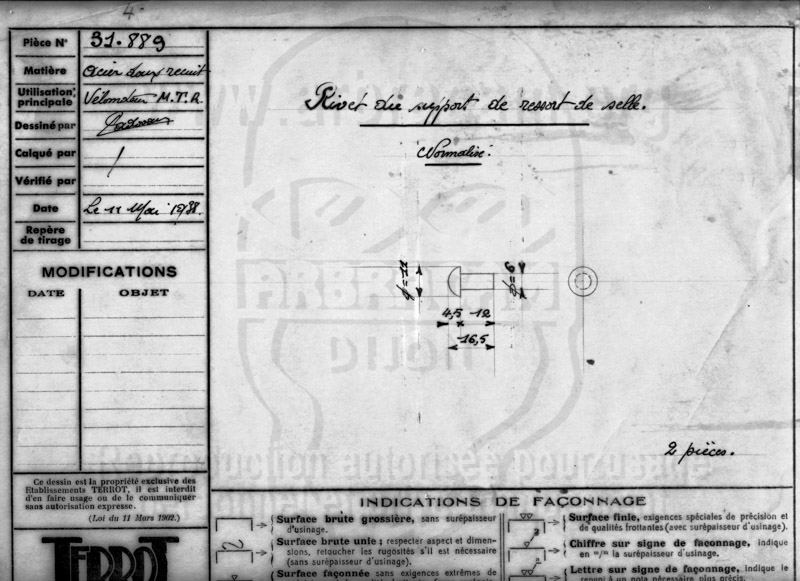 4
Pièce N° 31.889
Matière Acier doux recuit
Utilisation principale Vélomoteur M.T.R.
Dessiné par
Calqué par
Vérifié par
Date Le 11 Mai 1938.
Repère de tirage
MODIFICATIONS
DATE OBJET
Rivet du support de ressort de selle.
Normalisé.
ϕ=11
ϕ=6
4,5 12
16,5
2 pièces.
ARBRACAM
DIJON
Reproduction autorisée pour usage
Ce dessin est la propriété exclusive des
Etablissements TERROT, il est interdit
d'en faire usage ou de le communiquer
sans autorisation expresse.
(Loi du 11 Mars 1902.)
TERROT
INDICATIONS DE FAÇONNAGE
Surface brute grossière, sans surépaisseur
d'usinage.
Surface brute unie; respecter aspect et dimen-
sions, retoucher les rugosités s'il est nécessaire
(sans surépaisseur d'usinage).
Surface façonnée sans exigences extrêmes de
Surface finie, exigences spéciales de précision et
de qualités frottantes (avec surépaisseur d'usinage).
Chiffre sur signe de façonnage, indique
en "/" la surépaisseur d'usinage.
Lettre sur signe de façonnage, indique le
renvoi à un nota nécessaire plus précis.